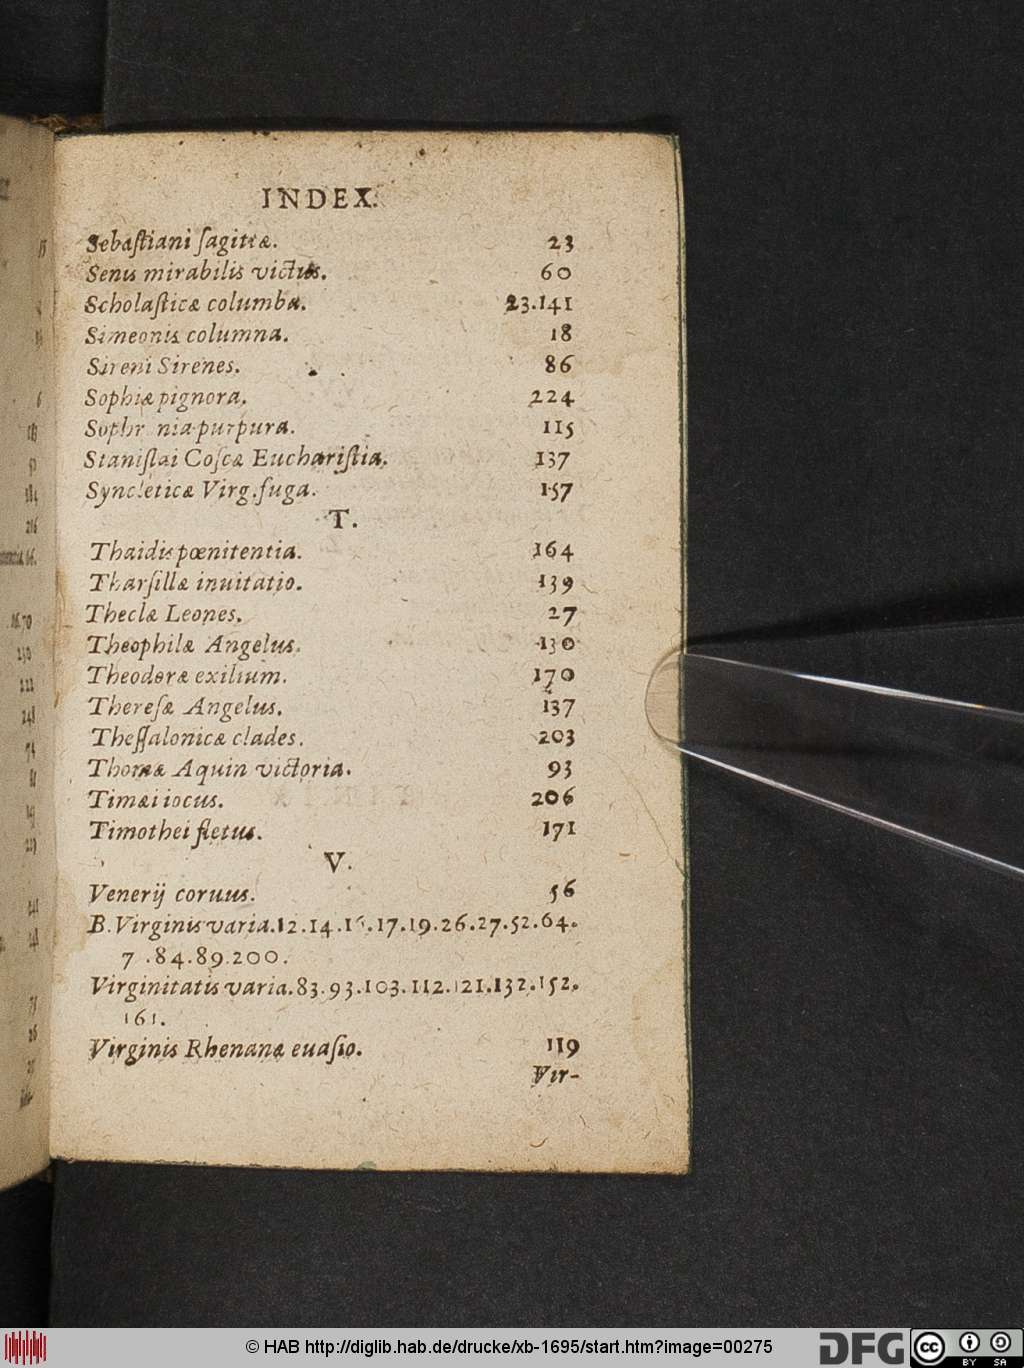 INDEX.
Sebaſtiani ſagittæ. 23
Senis mirabilis victus. 60
Scholaſticæ columba. 23.141
Simeonis columna. 18
Sireni Sirenes. 86
Sophiæ pignora. 224
purpura. 115
Staniſlai Coſcæ Euchariſtia. 137
Syncleticæ Virg. fuga. 157
T.
Thaidis pœnitentia. 164
Tharſillæ inuitatio. 139
Theclæ Leones. 27
Theophilæ Angelus. 130
Theodoræ exilium. 170
Thereſæ Angelus. 137
Theſſalonicæ clades. 203
Thomæ Aquin victoria. 93
Timæi iocus. 206
Timothei fletus. 171
V.
Venerij coruus. 56
B. Virginis varia. 12.14.16.17.19.26.27.52.64.
7 .84.89.200.
Virginitatis varia. 83.93.103.112.121.132.152.
161.
Virginis Rhenanæ euaſio. 119
Vir-
© HAB http://diglib.hab.de/drucke/xb-1695/start.htm?image=00275
DFG
cc BY SA